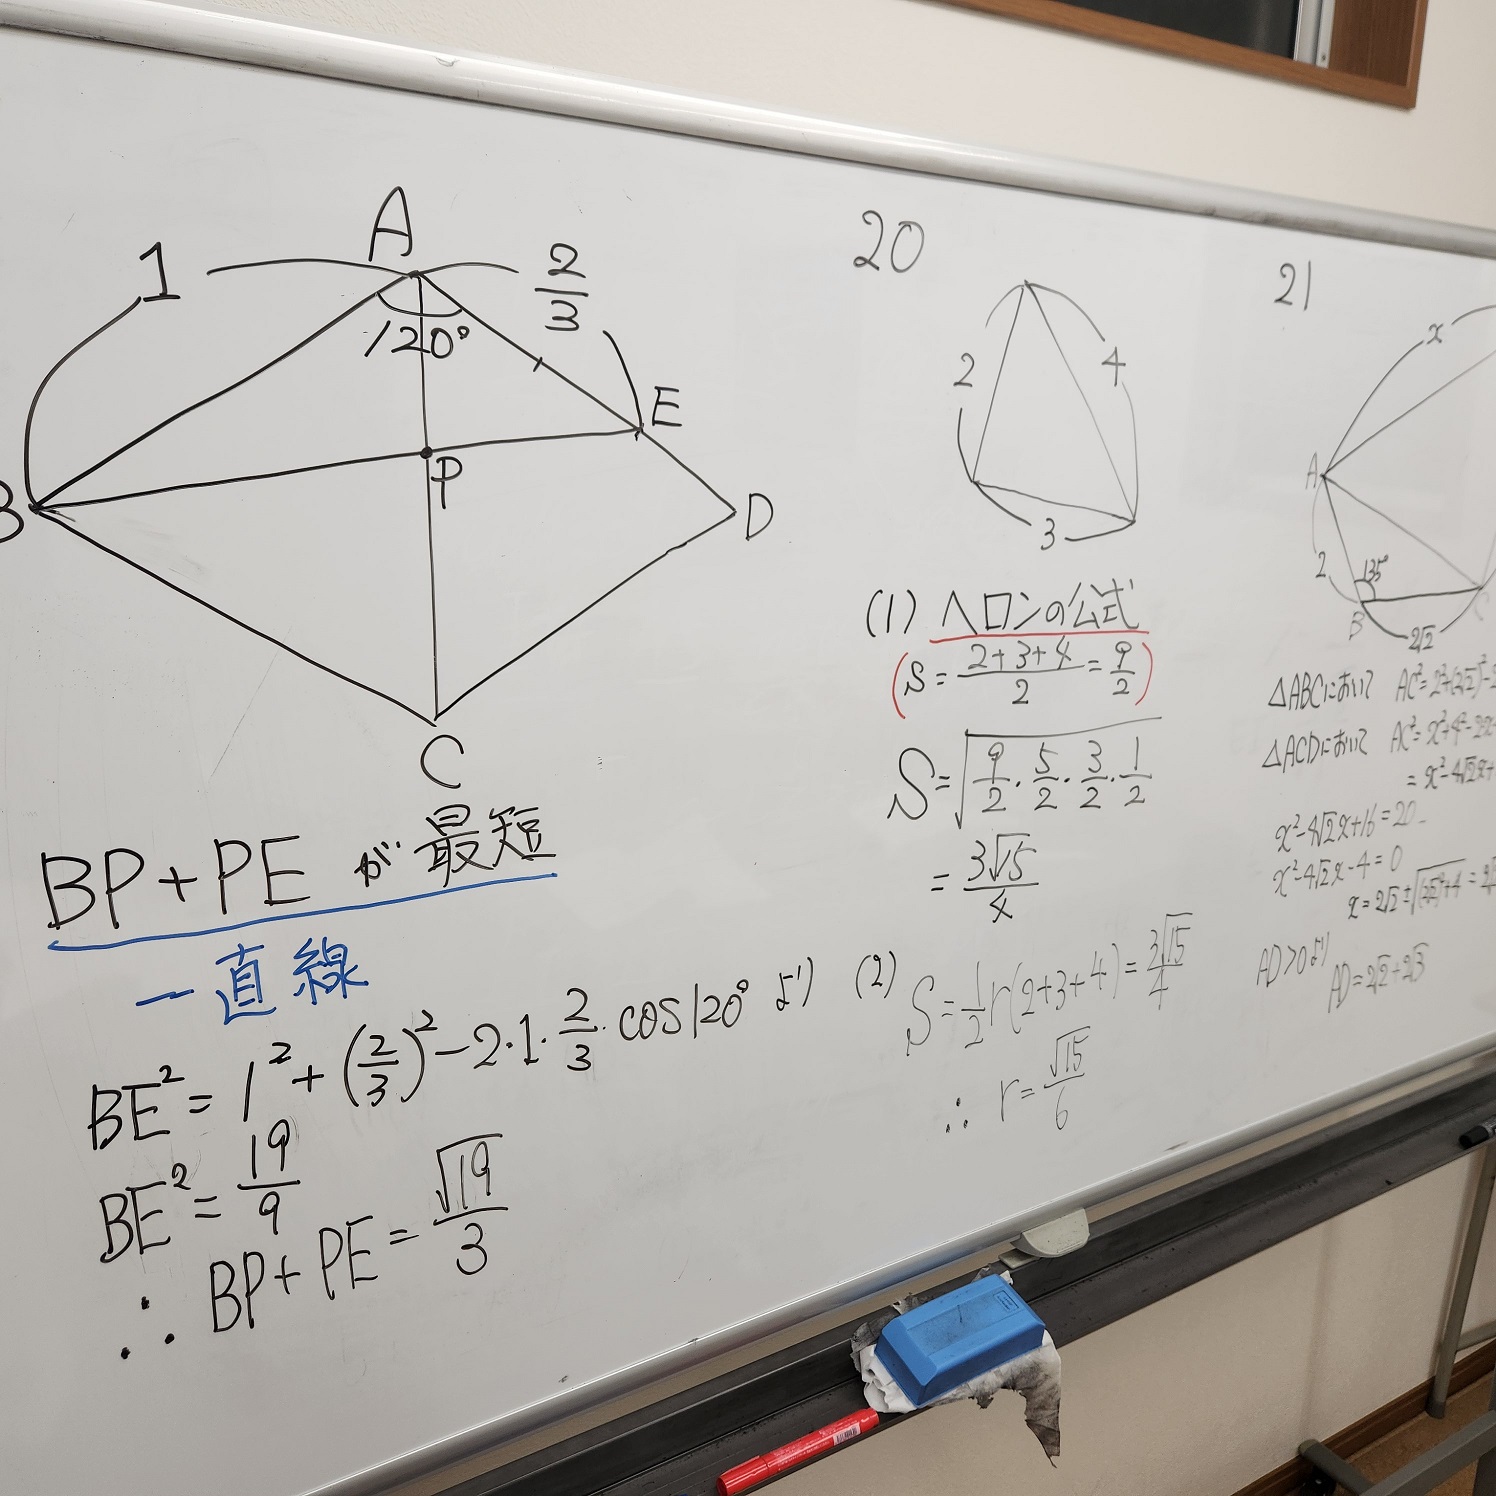 A
1
2/3
120°
E
P
B
D
C
BP+PE が 最短
一直線
BE² = 1² + (2/3)² − 2・1・2/3・cos120° より
BE² = 19/9
∴ BP+PE = √19/3
20
2
4
3
(1) ヘロンの公式
(s = (2+3+4)/2 = 9/2)
S = √(9/2・5/2・3/2・1/2)
= 3√15/4
(2) S = 1/2 r(2+3+4) = 3√15/4
∴ r = √15/6
21
x
A
2
135°
B
C
2√2
△ABCにおいて AC² = 2²+(2√2)²−2
△ACDにおいて AC² = x²+4²−2x
= x²−4√2x+
x²−4√2x+16 = 20
x²−4√2x−4 = 0
x = 2√2 ± √((2√2)²+4) = 2√
AD>0より AD = 2√2+2√3